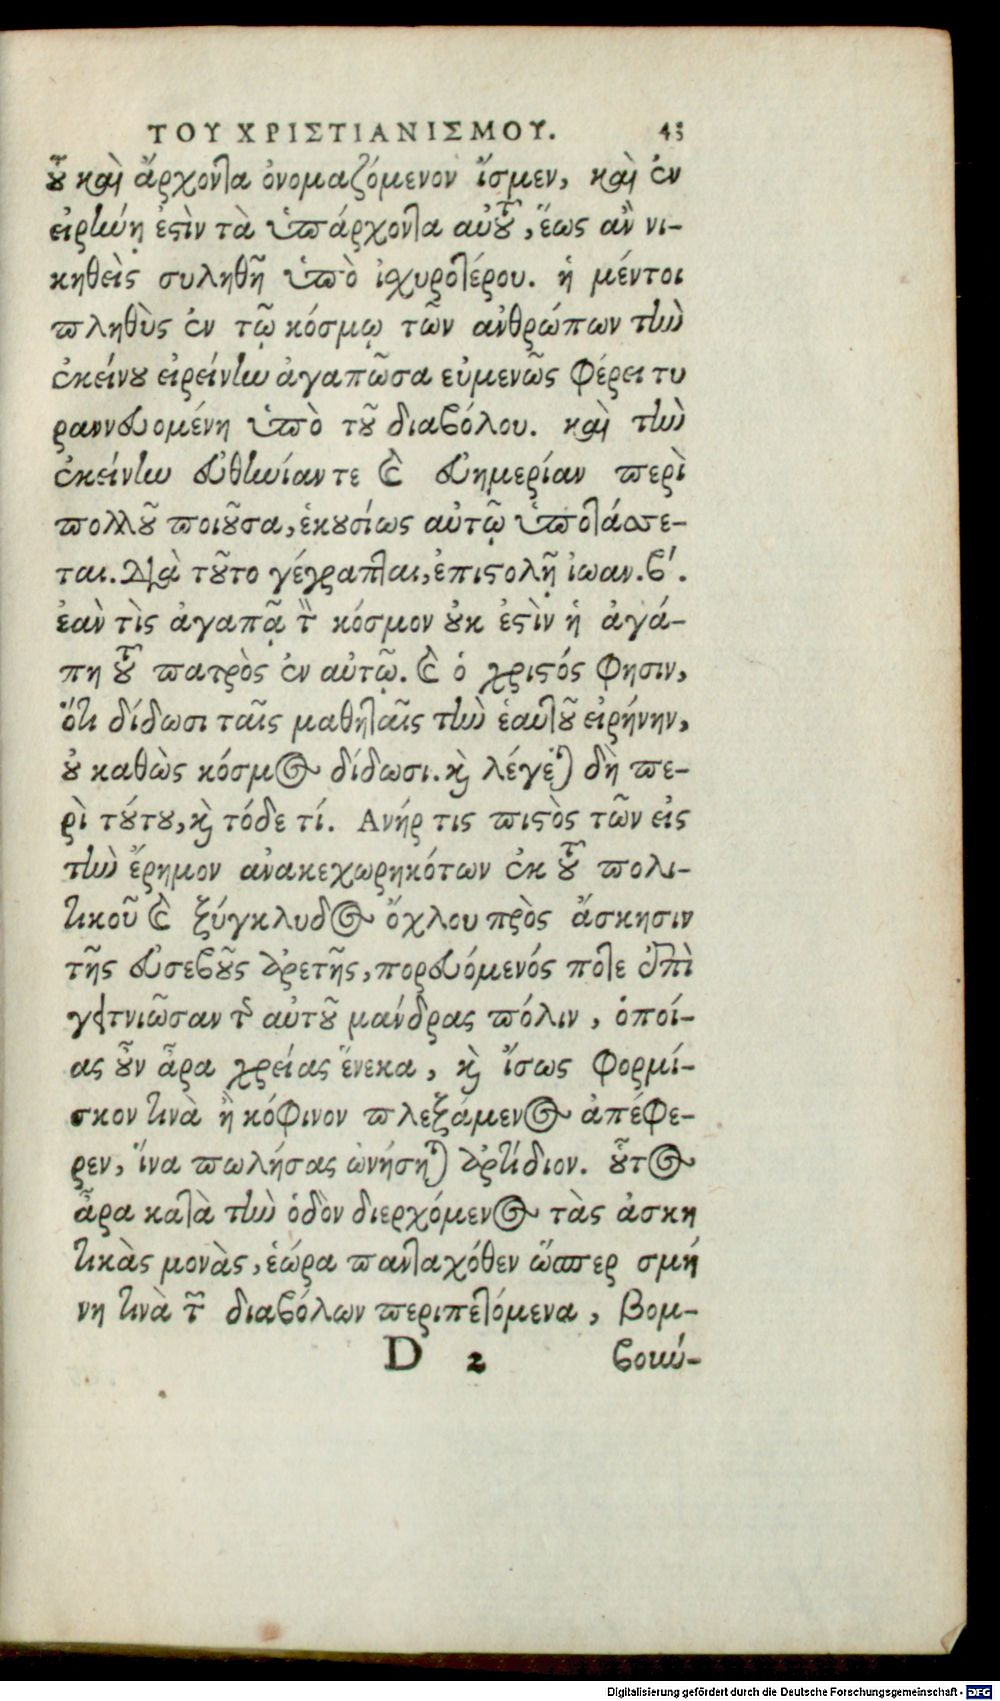 ΤΟΥ ΧΡΙΣΤΙΑΝΙΣΜΟΥ. 43
οὗ καὶ ἄρχοντα ὀνομαζόμενον ἴσμεν, καὶ ἐν
εἰρήνῃ ἐστὶν τὰ ὑπάρχοντα αὐτοῦ, ἕως ἂν νι-
κηθεὶς συληθῇ ὑπὸ ἰσχυροτέρου. ἡ μέντοι
πληθὺς ἐν τῷ κόσμῳ τῶν ἀνθρώπων τὴν
ἐκείνου εἰρείνην ἀγαπῶσα εὐμενῶς φέρει τυ
ραννευομένη ὑπὸ τοῦ διαβόλου. καὶ τὴν
ἐκείνην εὐθηνίαν τε καὶ εὐημερίαν περὶ
πολλοῦ ποιοῦσα, ἑκουσίως αὐτῷ ὑποτάσσε-
ται. Διὰ τοῦτο γέγραπται, ἐπιστολῇ ἰωαν. β΄.
ἐὰν τὶς ἀγαπᾷ τὸν κόσμον οὐκ ἐστὶν ἡ ἀγά-
πη τοῦ πατρὸς ἐν αὐτῷ. καὶ ὁ χριστός φησιν,
ὅτι δίδωσι ταῖς μαθηταῖς τὴν ἑαυτοῦ εἰρήνην,
οὐ καθὼς κόσμος δίδωσι. καὶ λέγεται δὴ πε-
ρὶ τούτου, καὶ τόδε τί. Ανήρ τις πιστὸς τῶν εἰς
τὴν ἔρημον ἀνακεχωρηκότων ἐκ τοῦ πολι-
τικοῦ καὶ ξύγκλυδος ὄχλου πρὸς ἄσκησιν
τῆς εὐσεβοῦς ἀρετῆς, πορευόμενός ποτε ἐπὶ
γειτνιῶσαν τῆς αὐτοῦ μάνδρας πόλιν, ὁποί-
ας οὖν ἆρα χρείας ἕνεκα, καὶ ἴσως φορμί-
σκον τινὰ ἢ κόφινον πλεξάμενος ἀπέφε-
ρεν, ἵνα πωλήσας ὠνήσηται ἀρτίδιον. οὗτος
ἆρα κατὰ τὴν ὁδὸν διερχόμενος τὰς ἀσκη
τικὰς μονὰς, ἑώρα πανταχόθεν ὥσπερ σμή
νη τινὰ τῶν διαβόλων περιπετόμενα, βομ-
D 2 βοιών-
Digitalisierung gefördert durch die Deutsche Forschungsgemeinschaft - DFG